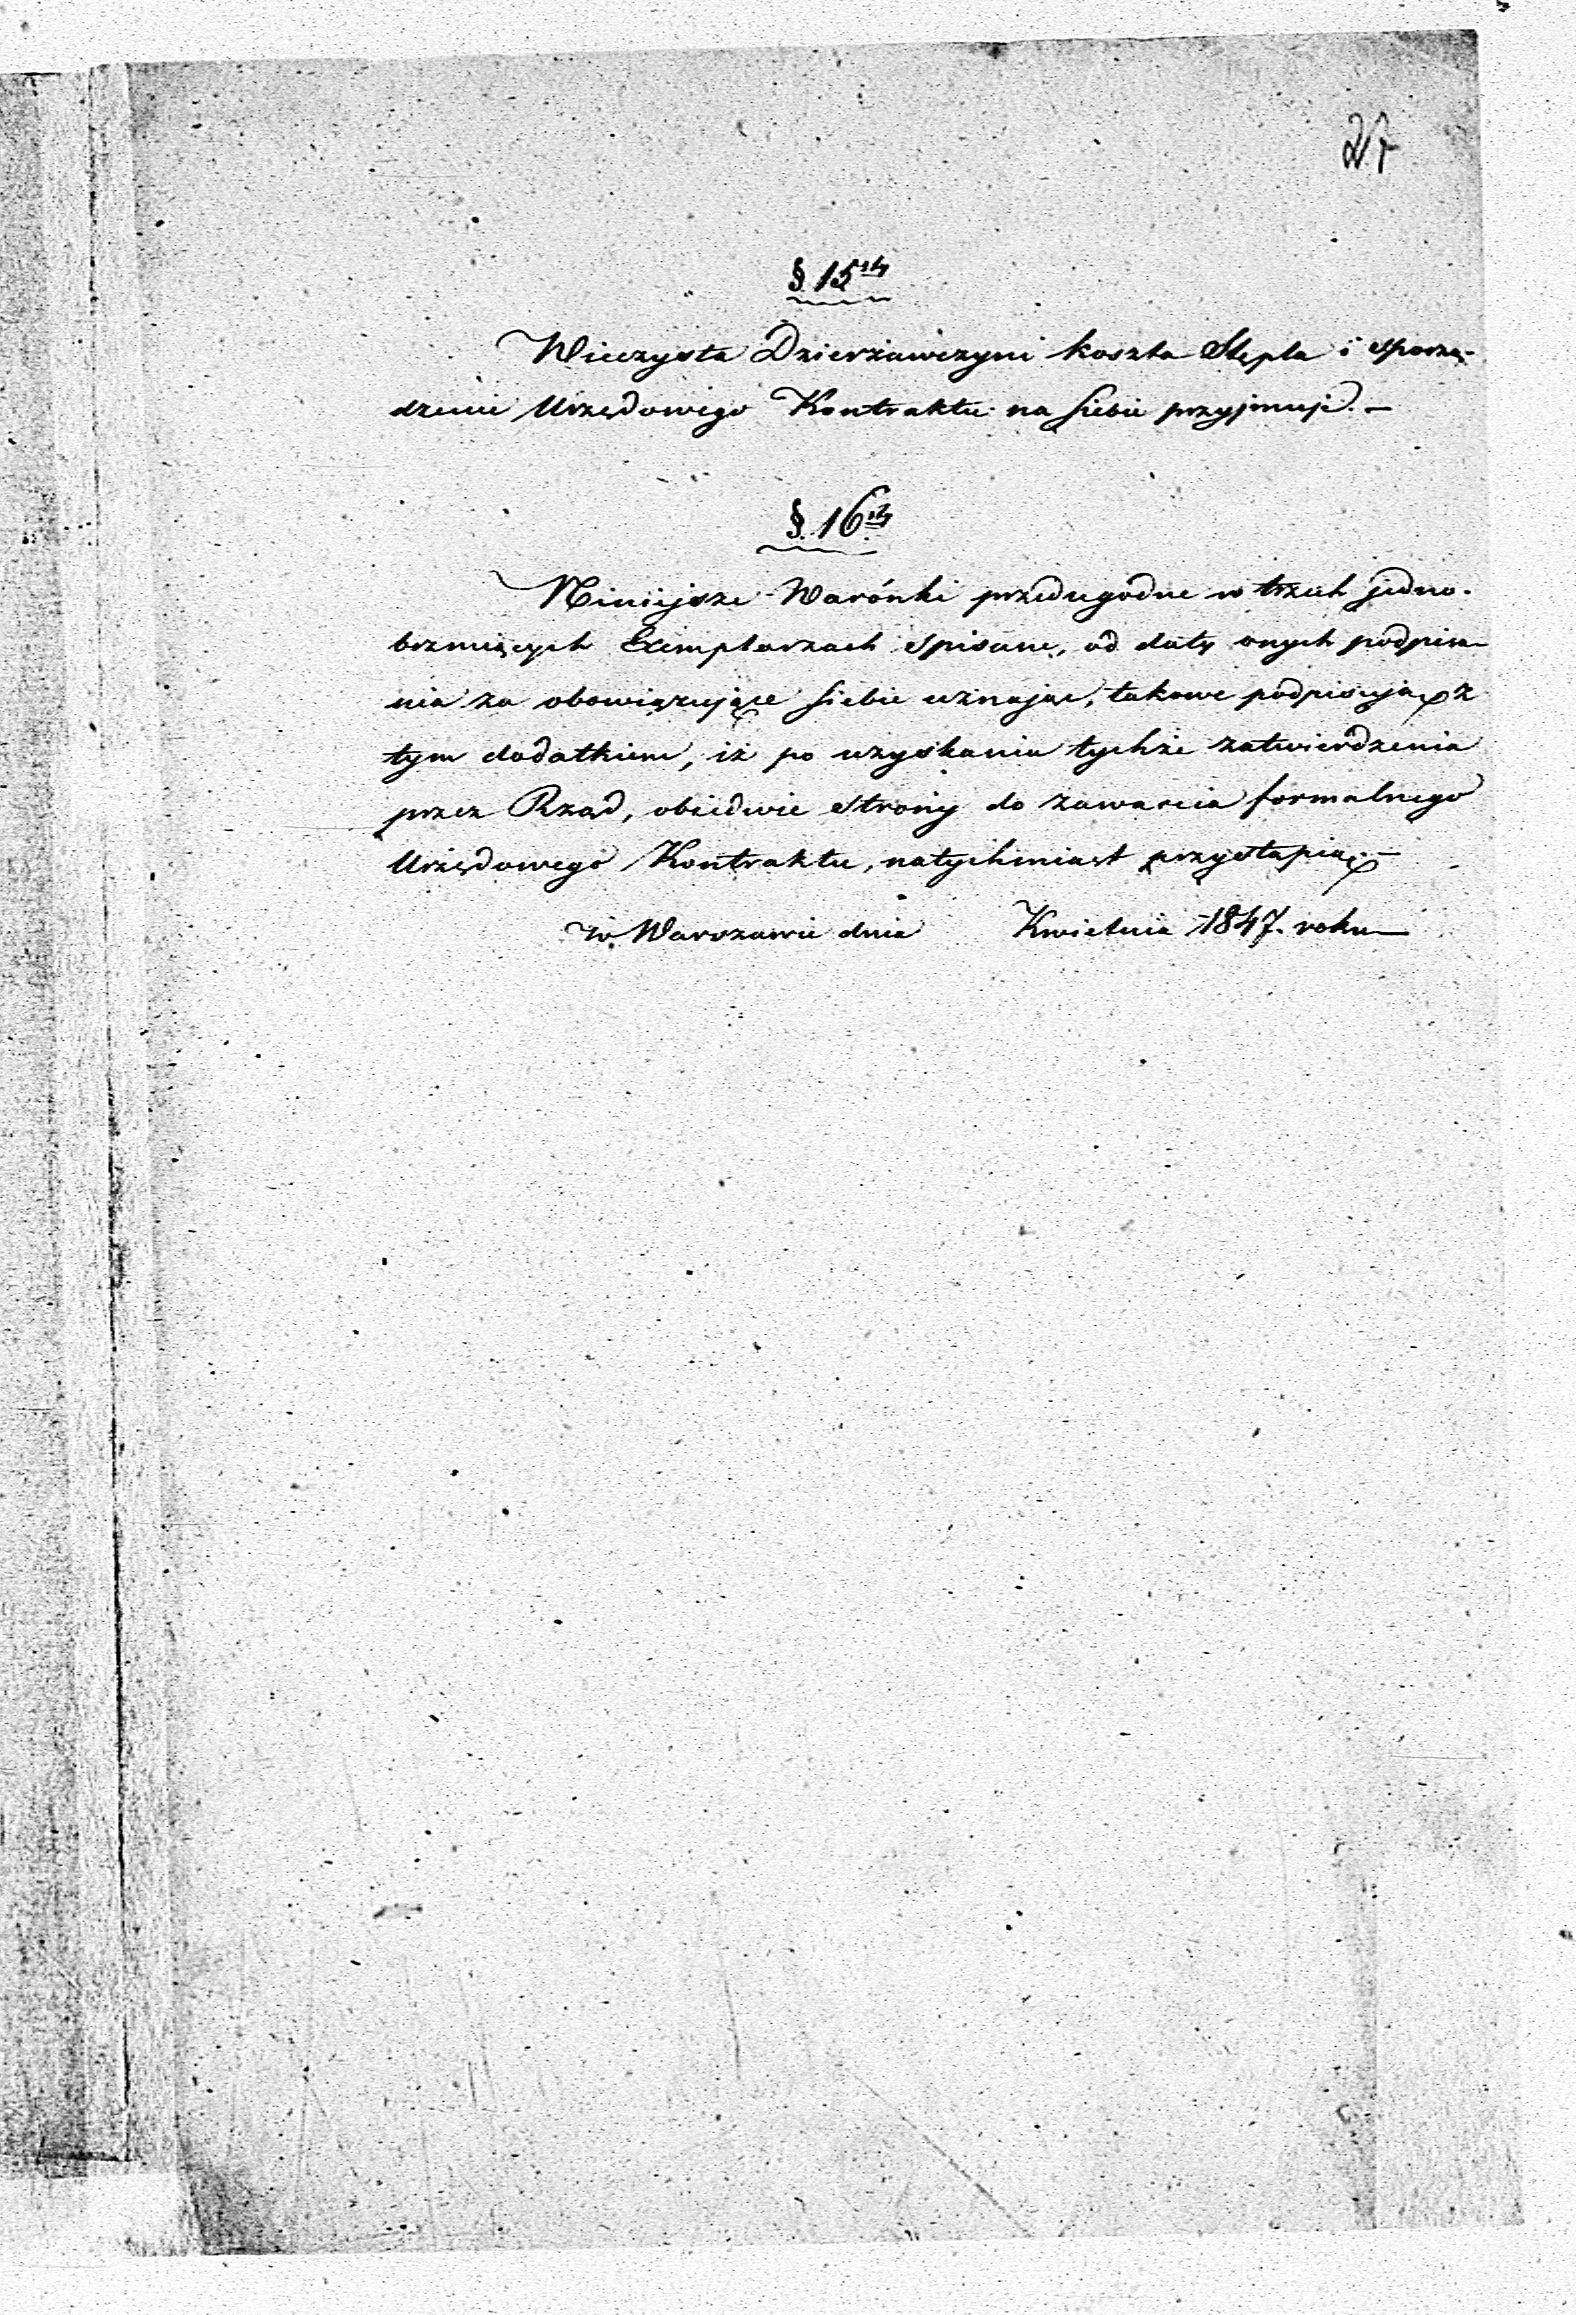 27
§ 15ty
Wieczysta Dzierżawczyni koszta Stępla i sporzą-
dzenie Urzędowego Kontraktu na siebie przyjmuje. —
§. 16ty
Niniejsze Warónki przedugodne w trzech jedno-
brzmiących Exemplarzach spisane, od daty onych podpisa-
nia za obowiązujące siebie uznając, takowe podpisują z
tym dodatkiem, iż po uzyskaniu tychże zatwierdzenia
przez Rząd, obiedwie strony do zawarcia formalnego
Urzędowego Kontraktu, natychmiast przystąpią. —
w Warszawie dnia Kwietnia 1847. roku —